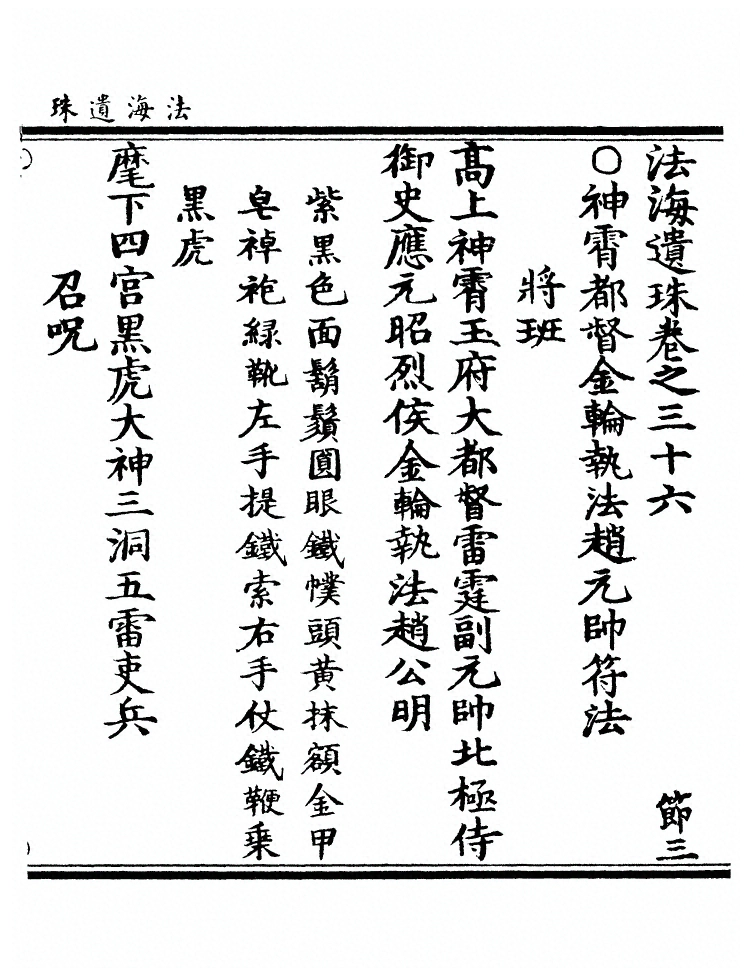 法海遺珠
法海遺珠卷之三十六
節三
○神霄都督金輪執法趙元帥符法
將班
高上神霄玉府大都督雷霆副元帥北極侍
御史應元昭烈侯金輪執法趙公明
紫黑色面鬍鬚圓眼鐵幞頭黃抹額金甲
皂禪袍綠靴左手提鐵索右手仗鐵鞭乗
黑虎
麾下四宮黑虎大神三洞五雷吏兵
召呪